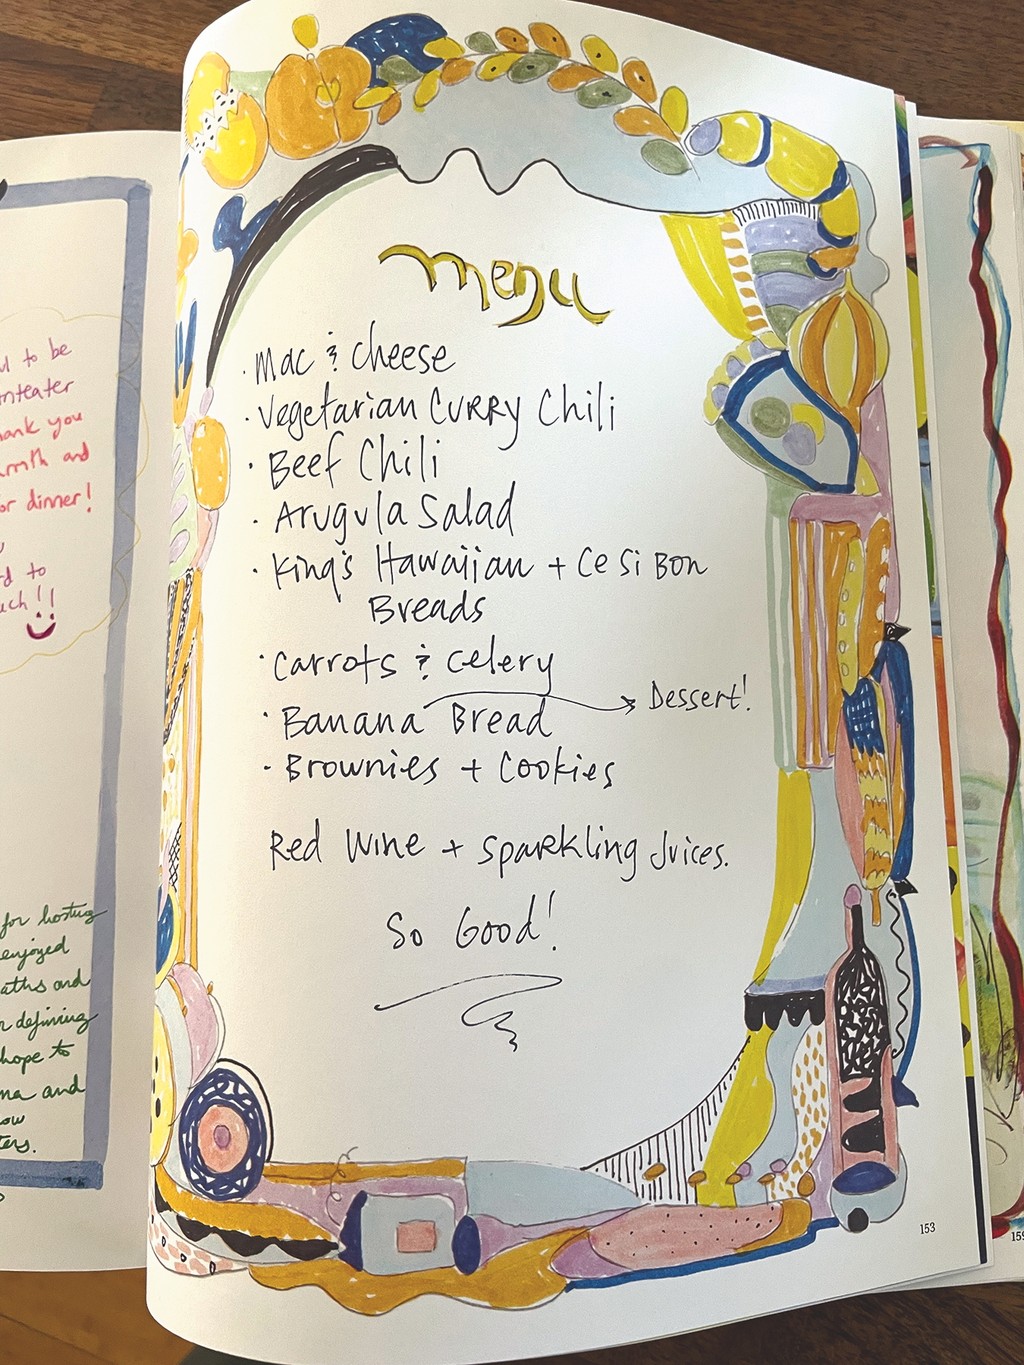 ul to be
nteater
hank you
rmth and
or dinner!
d to
uch!!
for hosting
enjoyed
aths and
n defining
hope to
ma and
ow
ters.
menu
· Mac & cheese
· Vegetarian CURRY Chili
· Beef Chili
· Arugula Salad
· King's Hawaiian + Ce Si Bon
Breads
· Carrots & Celery
· Banana Bread → Dessert!
· Brownies + Cookies
Red Wine + Sparkling Juices.
So Good!
153
159